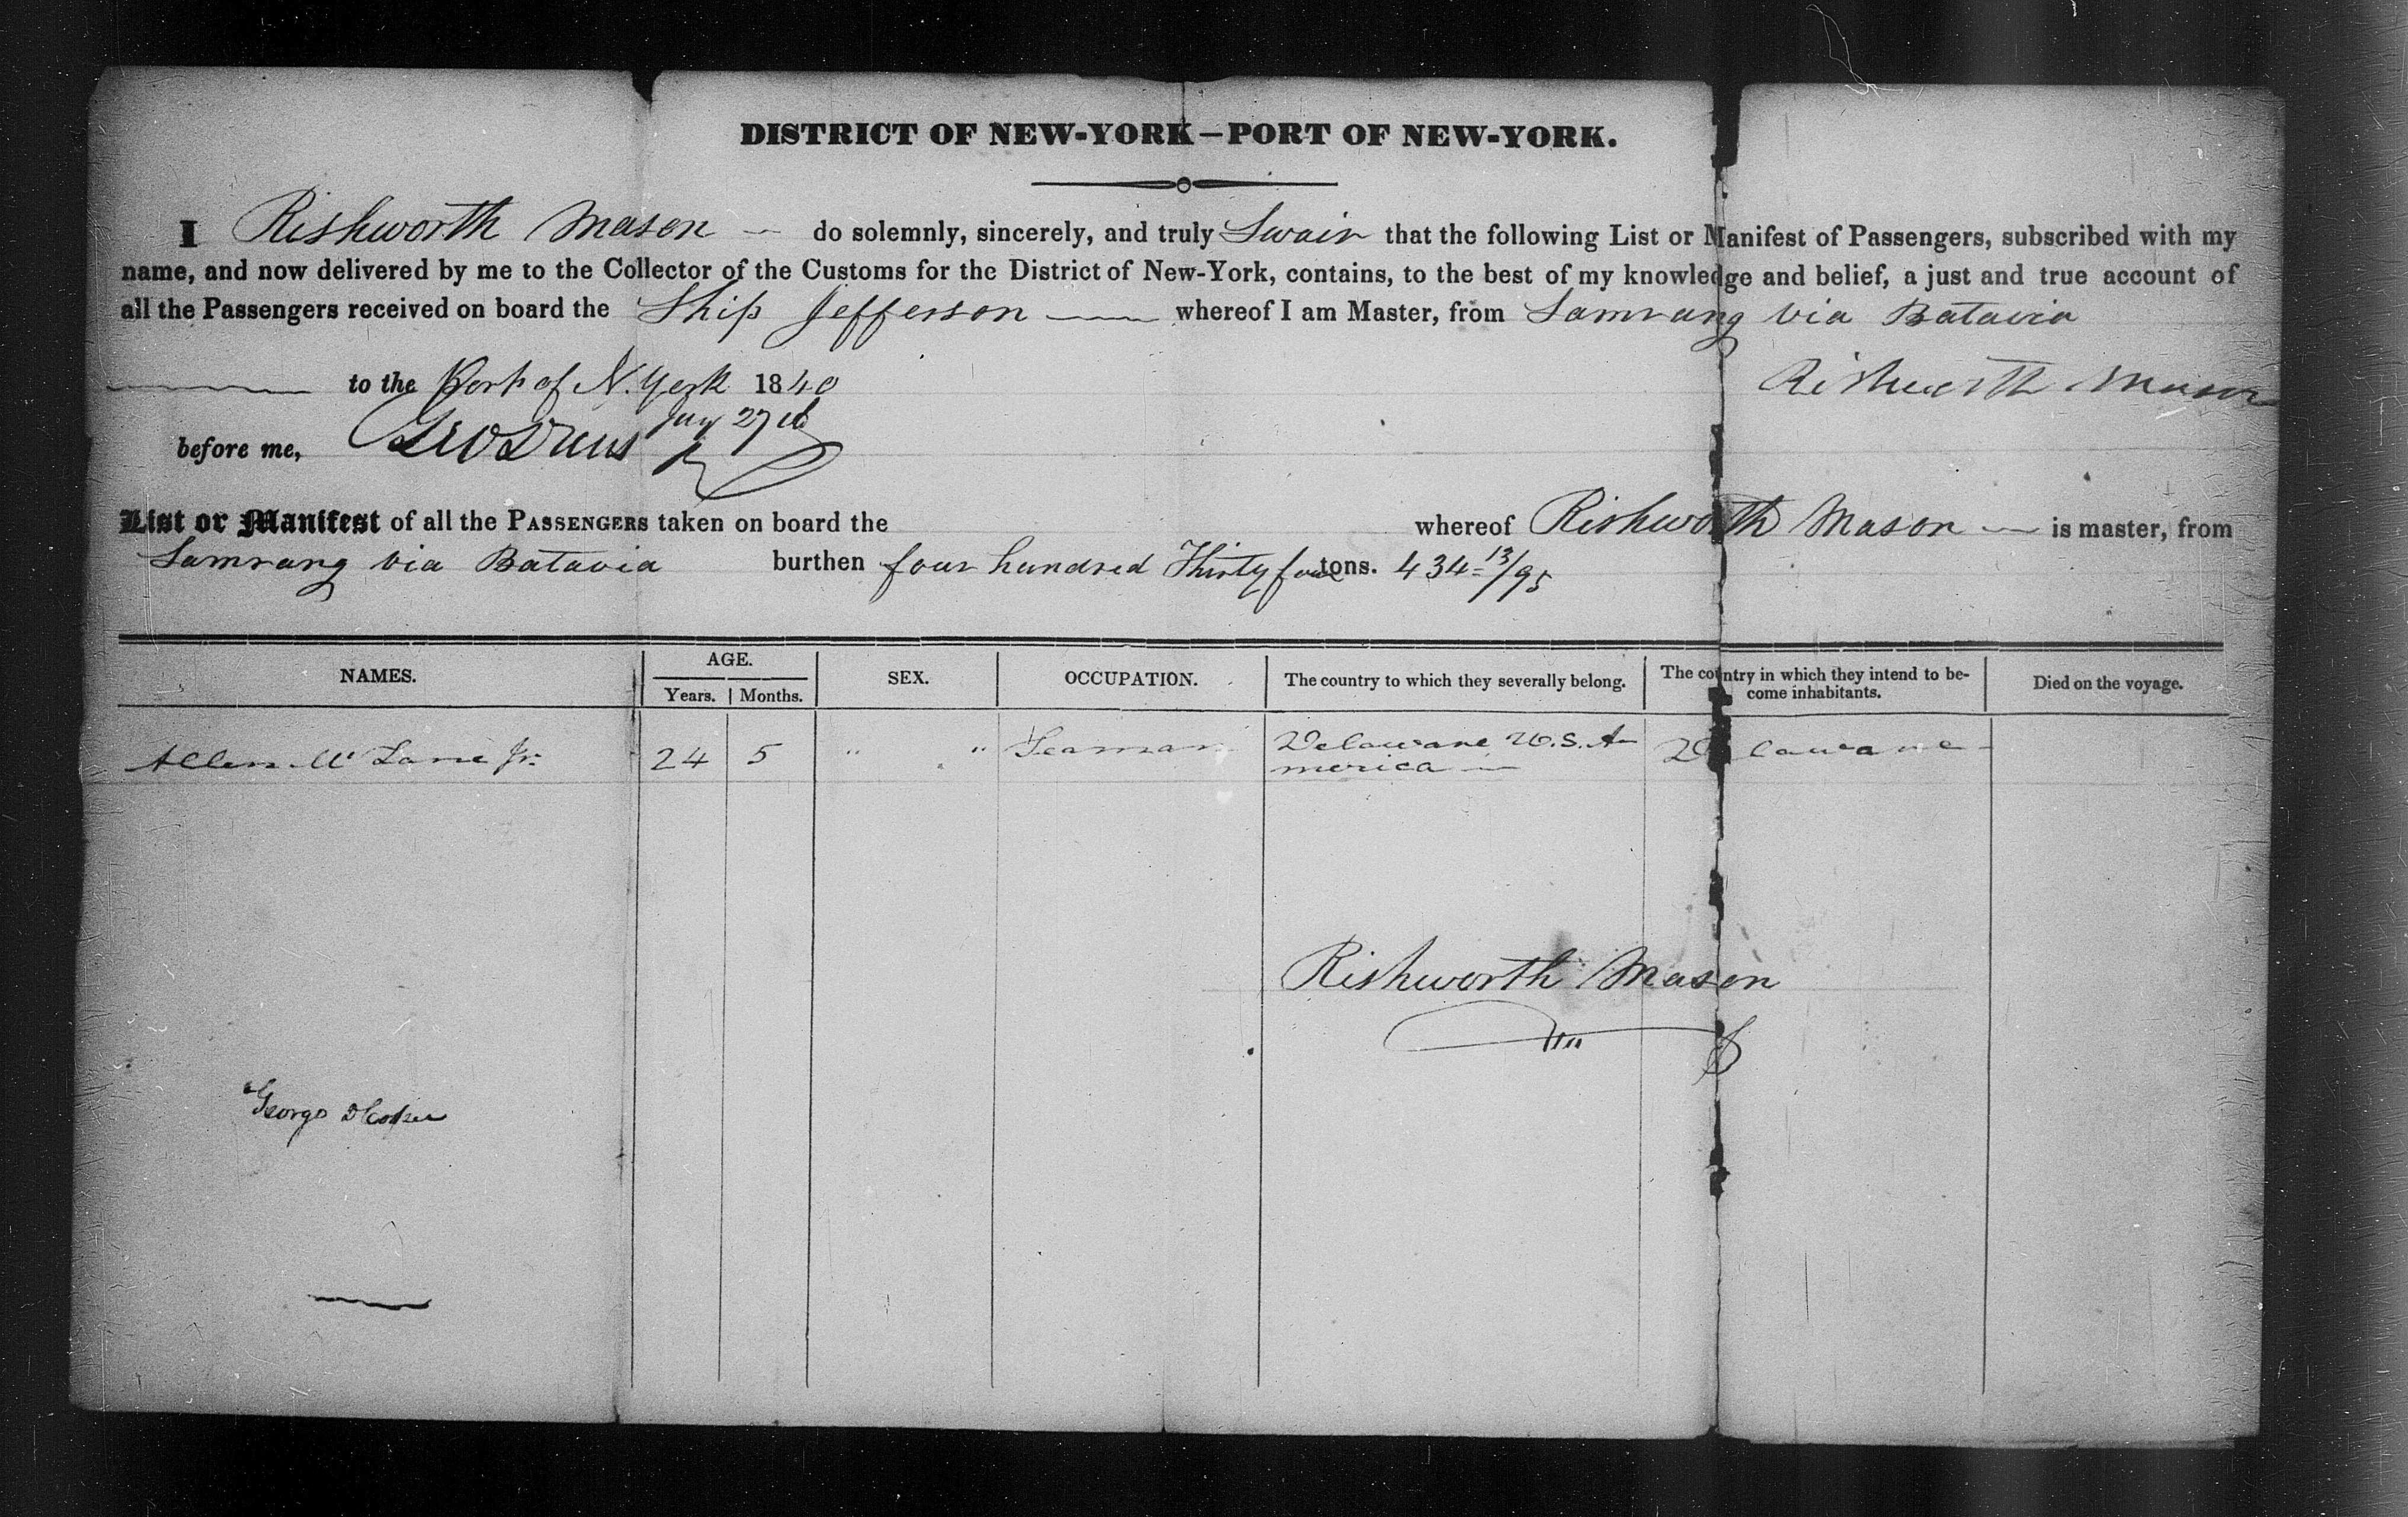 DISTRICT OF NEW-YORK—PORT OF NEW-YORK.
I Rishworth Mason — do solemnly, sincerely, and truly Swair that the following List or Manifest of Passengers, subscribed with my
name, and now delivered by me to the Collector of the Customs for the District of New-York, contains, to the best of my knowledge and belief, a just and true account of
all the Passengers received on board the Ship Jefferson — whereof I am Master, from Samrang via Batavia
— to the Port of N. York 1840 Rishworth Mason
Jany 27th
before me, Geo
List or Manifest of all the PASSENGERS taken on board the whereof Rishworth Mason — is master, from
Samrang via Batavia burthen four hundred Thirty four tons. 434-13/95
NAMES. AGE. Years. Months. SEX. OCCUPATION. The country to which they severally belong. The country in which they intend to be-
come inhabitants. Died on the voyage.
Allen Mc Lane Jr. 24 5 " " Seaman Delaware U.S. A-
merica — Delaware
Rishworth Mason
George